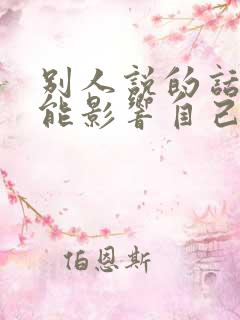 別人說的話
能影響自己
伯恩斯